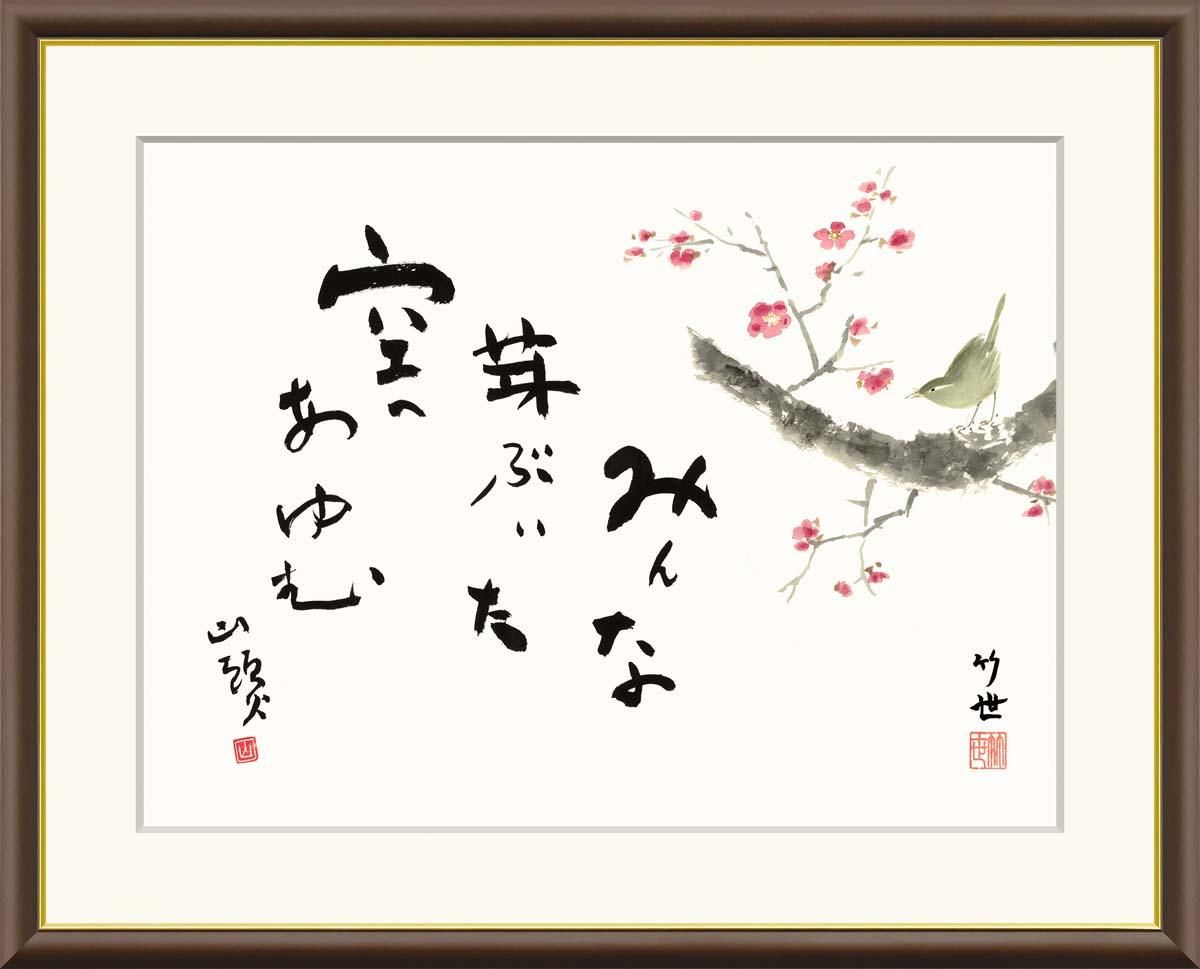 みんな
芽ぶいた
空へ
あゆむ
山頭火
山
竹世
竹世